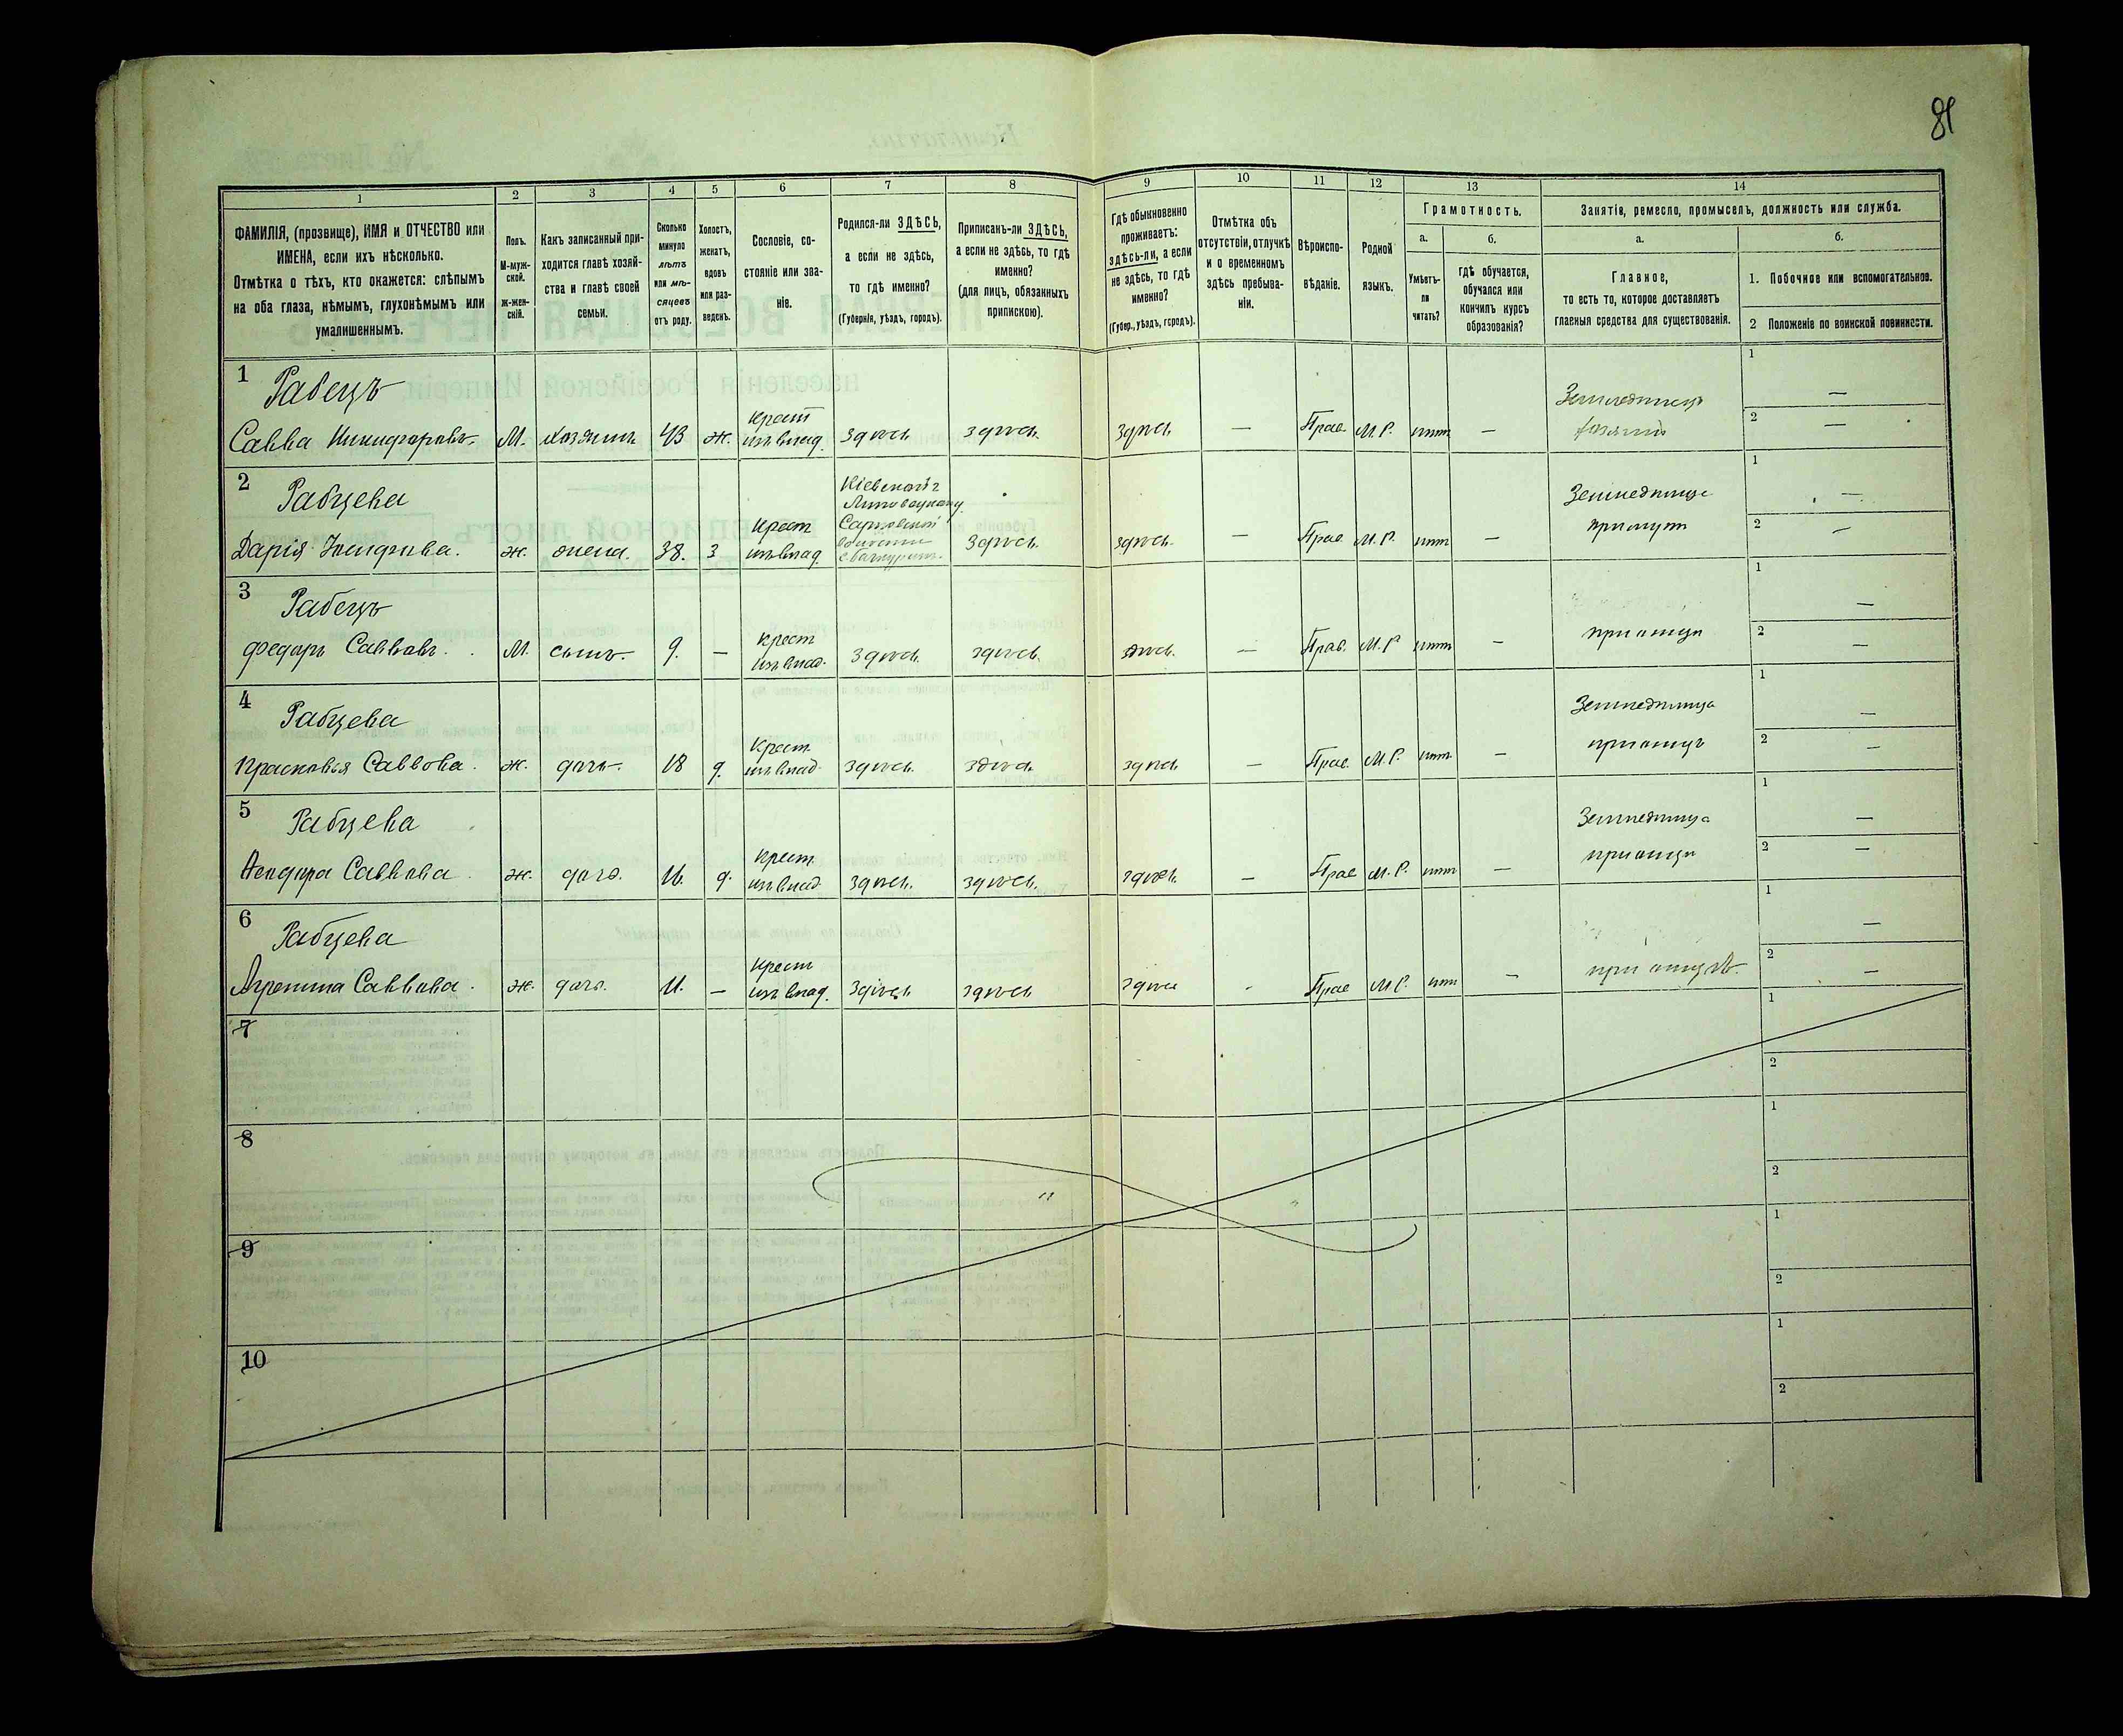 81
1 2 3 4 5 6 7 8 9 10 11 12 13 14
ФАМИЛІЯ, (прозвище), ИМЯ и ОТЧЕСТВО или
ИМЕНА, если ихъ нѣсколько.
Отмѣтка о тѣхъ, кто окажется: слѣпымъ
на оба глаза, нѣмымъ, глухонѣмымъ или
умалишеннымъ.
Полъ.
М-муж-
ской.
ж-жен-
скій.
Какъ записанный при-
ходится главѣ хозяй-
ства и главѣ своей
семьи.
Сколько
минуло
лѣтъ
или мѣ-
сяцевъ
отъ роду.
Холостъ,
женатъ,
вдовъ
или раз-
веденъ.
Сословіе, со-
стояніе или зва-
ніе.
Родился-ли ЗДѢСЬ,
а если не здѣсь,
то гдѣ именно?
(Губернія, уѣздъ, городъ).
Приписанъ-ли ЗДѢСЬ,
а если не здѣсь, то гдѣ
именно?
(для лицъ, обязанныхъ
припискою).
Гдѣ обыкновенно
проживаетъ:
здѣсь-ли, а если
не здѣсь, то гдѣ
именно?
(Губер., уѣздъ, городъ).
Отмѣтка объ
отсутствіи, отлучкѣ
и о временномъ
здѣсь пребыва-
ніи.
Вѣроиспо-
вѣданіе.
Родной
языкъ.
Грамотность.
а.
Умѣетъ-
ли
читать?
б.
гдѣ обучается,
обучался или
кончилъ курсъ
образованія?
Занятіе, ремесло, промыселъ, должность или служба.
а.
Главное,
то есть то, которое доставляетъ
главныя средства для существованія.
б.
1. Побочное или вспомогательное.
2 Положеніе по воинской повинности.
1 Рабецъ
Савва Никифоровъ. М. хозяинъ 43 ж. Крест изъ влад. здѣсь здѣсь. здѣсь — Прав. М.Р. нѣтъ — Земледѣлецъ хозяинъ 1 — 2 —
2 Рабцева
Дарія ж. жена. 38. З Крест изъ влад. Кіевской г здѣсь. здѣсь. — Прав. М.Р. нѣтъ — Земледѣлица при мужѣ 1 — 2 —
3 Рабецъ
Федоръ Саввовъ. М. сынъ. 9. — Крест изъ влад. здѣсь. здѣсь. здѣсь. — Прав. М.Р нѣтъ — при отцѣ 1 — 2 —
4 Рабцева
Прасковья Саввова. ж. дочь. 18 д. Крест изъ влад. здѣсь. здѣсь здѣсь — Прав. М.Р. нѣтъ — Земледѣлица при отцѣ 1 — 2 —
5 Рабцева
Феодора Саввова. ж. дочь. 16. д. Крест. изъ влад здѣсь. здѣсь. здѣсь. — Прав М.Р. нѣтъ — Земледѣлица при отцѣ 1 — 2 —
6 Рабцева
Агрепина Саввова. ж. дочь. 11. — Крест изъ влад. здѣсь здѣсь здѣсь - Прав М.Р. нѣт — при отцѣ. 1 — 2 —
7 1 2
8 1 2
9 1 2
10 1 2